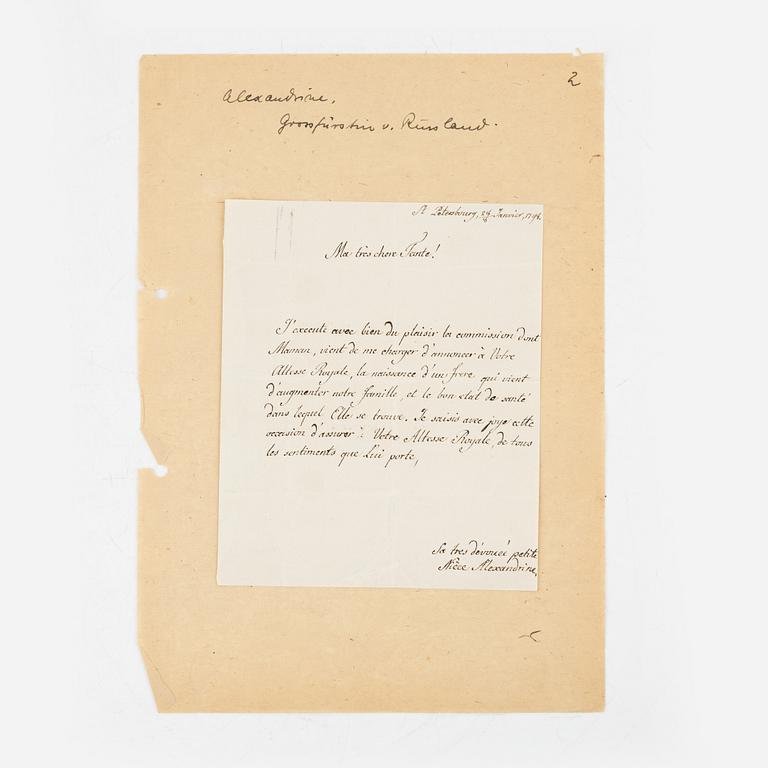 2
Alexandrine.
Grossfürstin v. Russland.
St Petersbourg, Janvier, 1798.
Ma très chere Tante!
J'execute avec bien du plaisir la commission dont
Maman, vient de me charger d'annoncer à Votre
Altesse Royale, la naissance d'un frere qui vient
d'augmenter notre famille, et le bon etat de santé
dans lequel Elle se trouve. Je saisis avec joye cette
occasion d'assurer à Votre Altesse Royale, de tous
les sentiments que Lui porte,
Sa tres dévouée petite
Nièce Alexandrine.